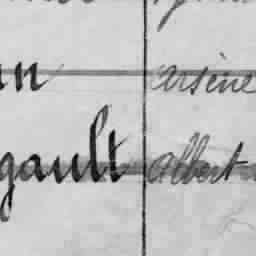 un arsène
gault albert